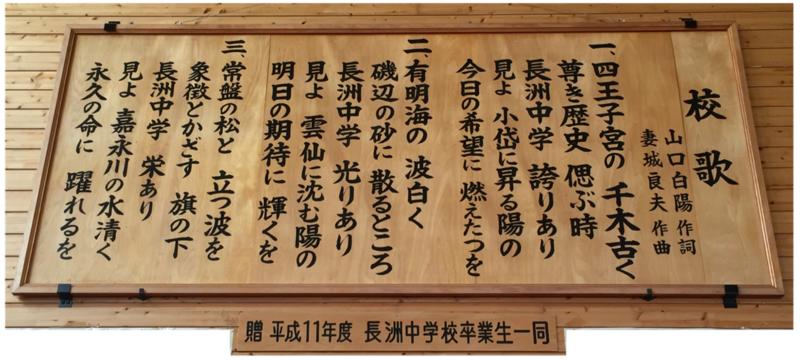 校歌
山口白陽 作詞
妻城良夫 作曲
一、四王子宮の 千木古く
尊き歴史 偲ぶ時
長洲中学 誇りあり
見よ 小岱に昇る陽の
今日の希望に 燃えたつを
二、有明海の 波白く
磯辺の砂に 散るところ
長洲中学 光りあり
見よ 雲仙に沈む陽の
明日の期待に 輝くを
三、常盤の松と 立つ波を
象徴とかざす 旗の下
長洲中学 栄あり
見よ 嘉永川の水清く
永久の命に 躍れるを
贈 平成11年度 長洲中学校卒業生一同